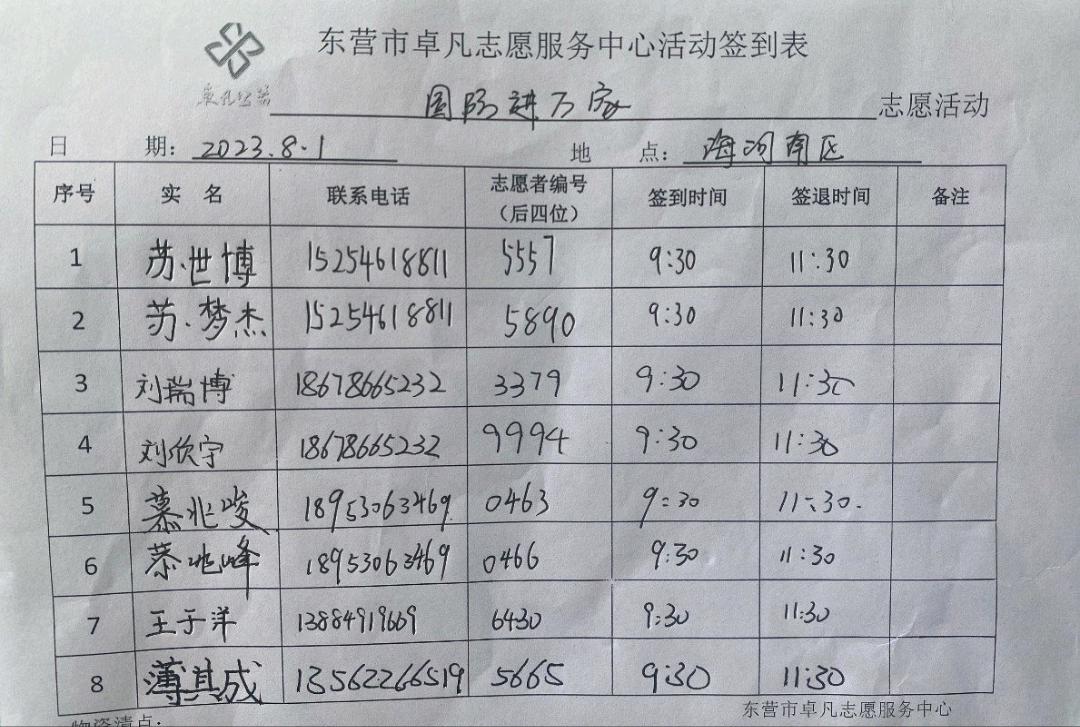 东营市卓凡志愿服务中心活动签到表
卓凡公益
国防进万家 志愿活动
日 期: 2023.8.1 地 点: 海河南区
序号 实 名 联系电话 志愿者编号(后四位) 签到时间 签退时间 备注
1 苏世博 15254618811 5557 9:30 11:30
2 苏梦杰 15254618811 5890 9:30 11:30
3 刘瑞博 18678665232 3379 9:30 11:30
4 刘欣宇 18678665232 9994 9:30 11:30
5 慕兆峻 18953063469 0463 9:30 11:30
6 慕兆峰 18953063469 0466 9:30 11:30
7 王于洋 13884919669 6430 9:30 11:30
8 薄其成 13562266519 5665 9:30 11:30
东营市卓凡志愿服务中心
物资清点: